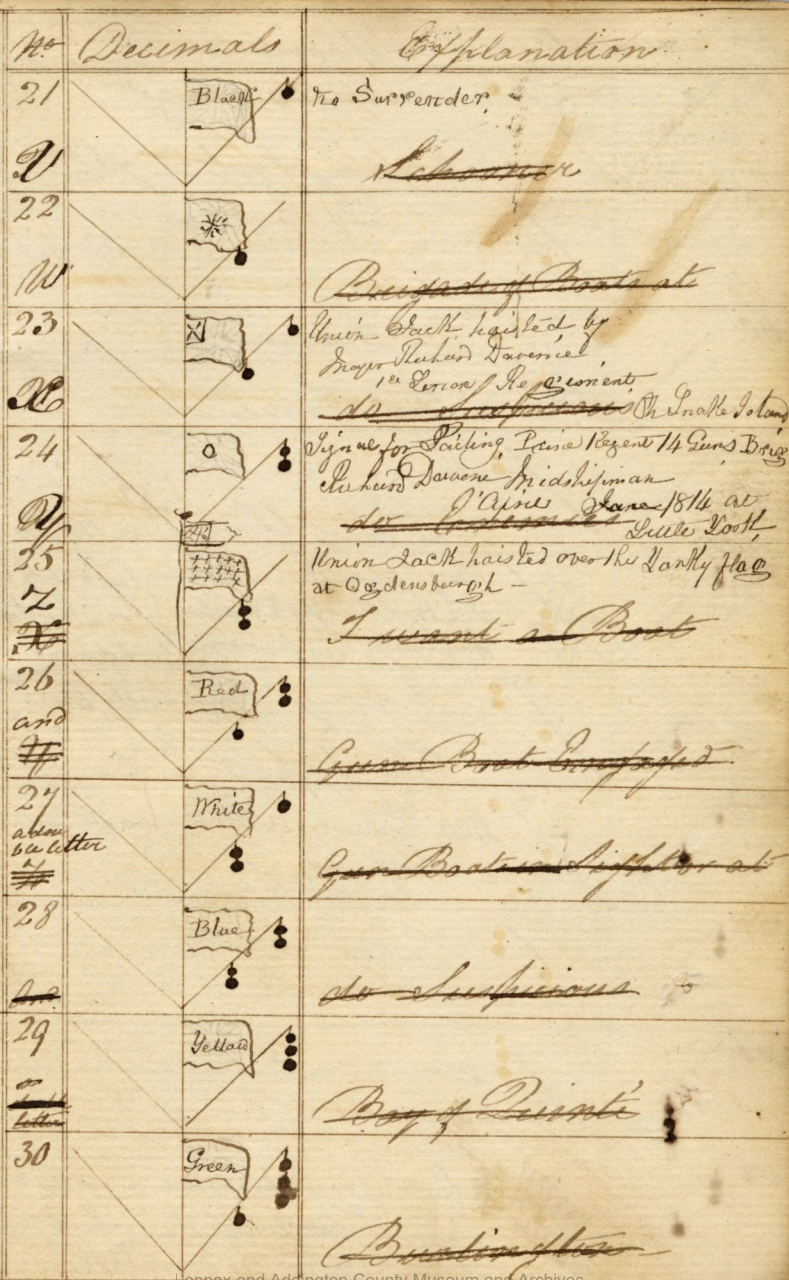 No. Decimals Explanation
21 Black No Surrender
V Schooner
22
W Brigade of Boats at
23 Union Jack haisted by
Mayer Richard Davernie
1st Lenox Regiment
X do Suspicious Oh Snake Island
24 Signal for Sailing Prince Regent 14 Guns Brig
Richard Davene Midshipman
June 1814 at
Y do Enemies Little York
25 Union Jack haisted over the Yanky flag
Z at Ogdensburgh —
X I want a Boat
26 Red
and
Y Gun Boat Engaged
27 White
a dou
ble letter
Z Gun Boat in Sight or at
28 Blue
And do Suspicious
29 Yellow
a
double Bay of Quinté
letter
30 Green
Burlington
Lennox and Addington County Museum and Archives